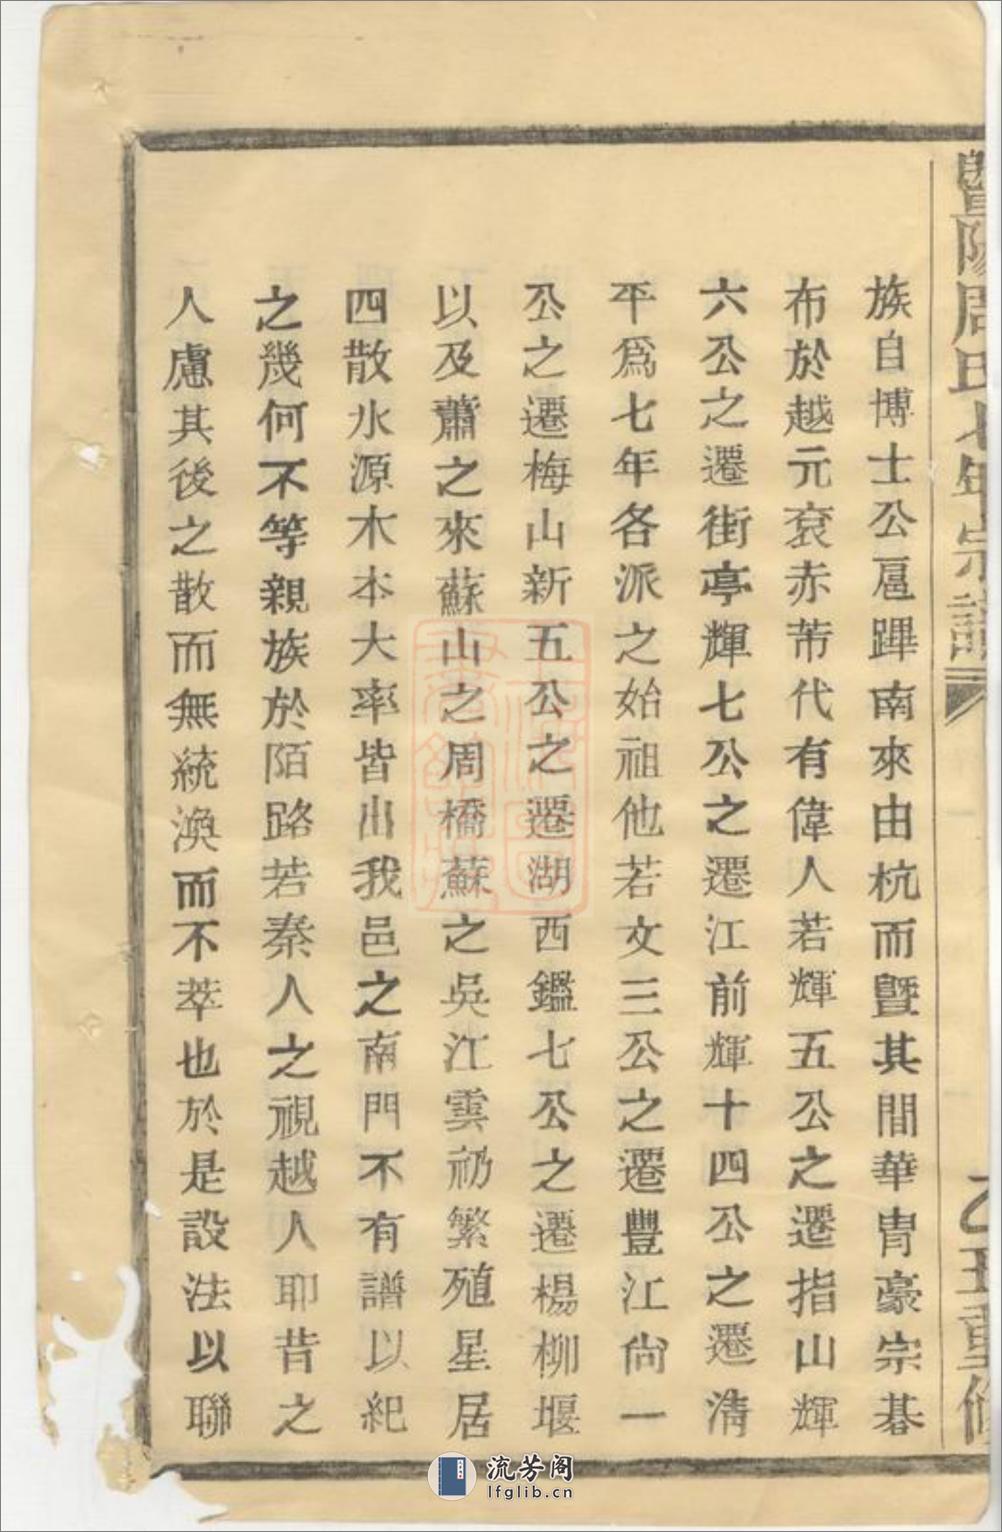 暨陽周氏七年宗譜
乙丑重修
族自博士公扈蹕南來由杭而暨其間華胄豪宗碁
布於越元袞赤芾代有偉人若輝五公之遷指山輝
六公之遷街亭輝七公之遷江前輝十四公之遷淸
平爲七年各派之始祖他若文三公之遷豐江尙一
公之遷梅山新五公之遷湖西鑑七公之遷楊柳堰
以及蕭之來蘇山之周橋蘇之吳江雲礽繁殖星居
四散水源木本大率皆出我邑之南門不有譜以紀
之幾何不等親族於陌路若秦人之視越人耶昔之
人慮其後之散而無統渙而不萃也於是設法以聯
流芳阁
lfglib.cn